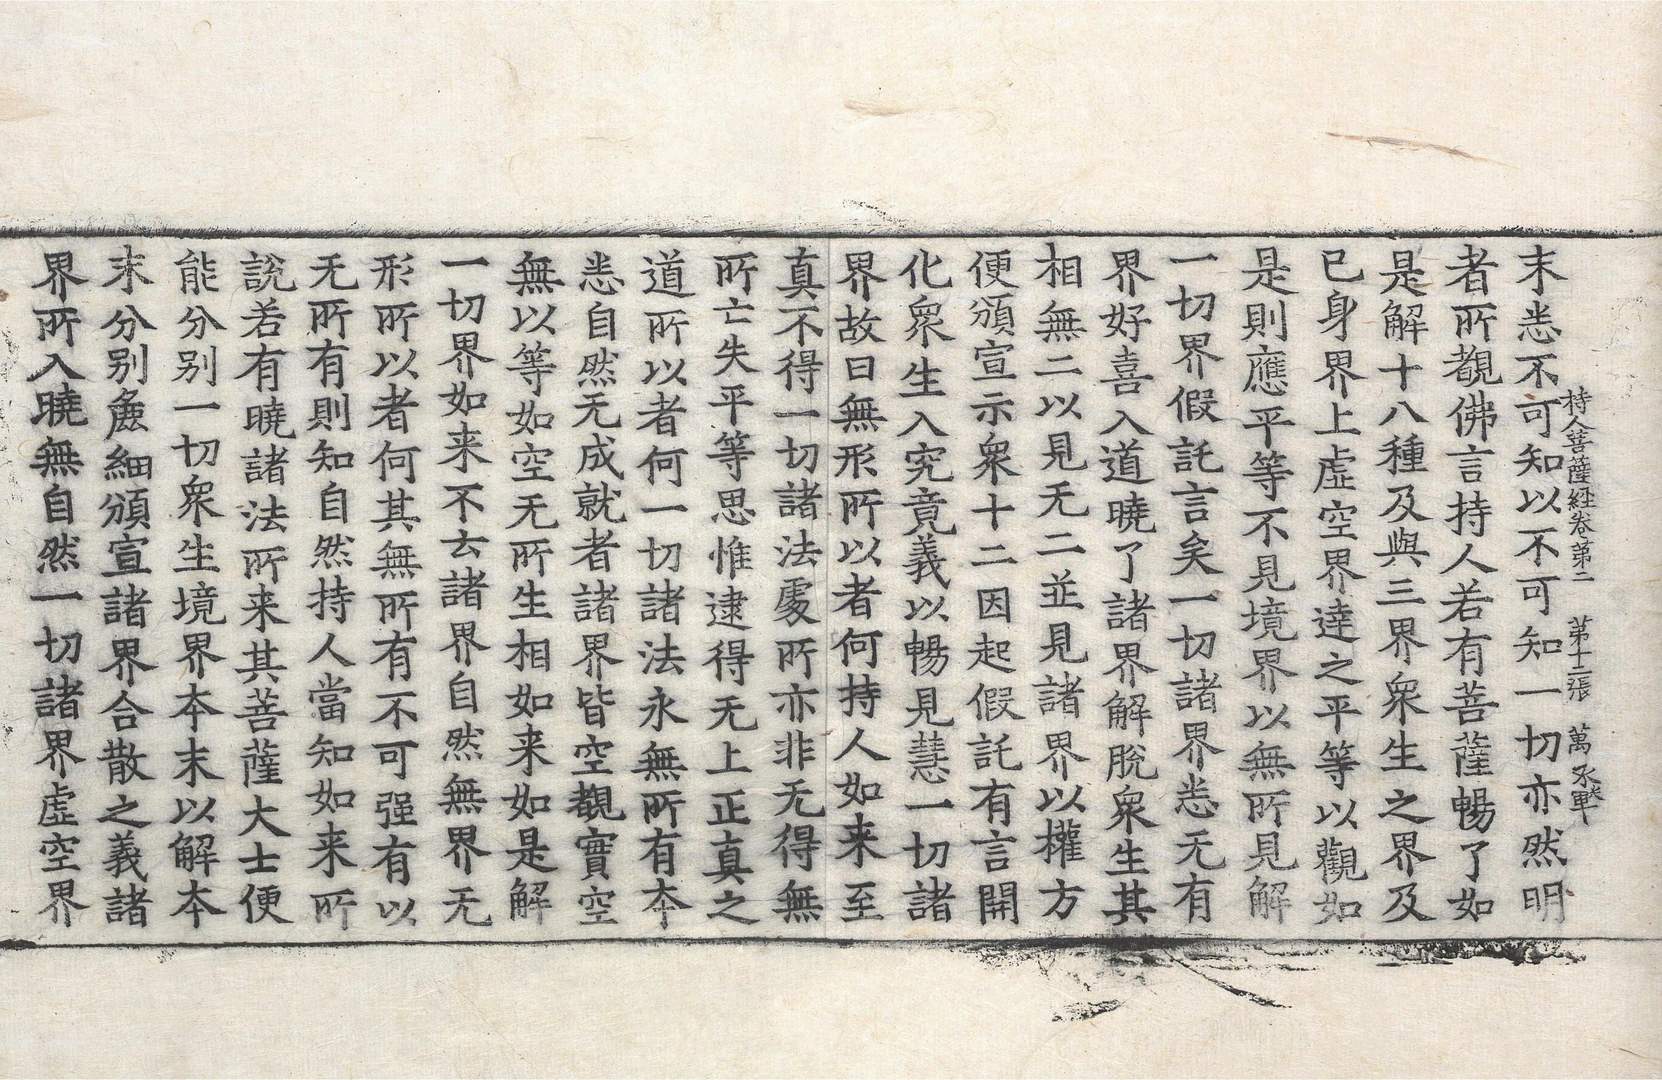 持人菩薩経卷第二 第十二張 萬
末悉不可知以不可知一切亦然明
者所覩佛言持人若有菩薩暢了如
是解十八種及與三界衆生之界及
已身界上虛空界達之平等以觀如
是則應平等不見境界以無所見解
一切界假託言矣一切諸界悉无有
界好喜入道曉了諸界解脫衆生其
相無二以見无二並見諸界以權方
便頒宣示衆十二因起假託有言開
化衆生入究竟義以暢見慧一切諸
界故曰無形所以者何持人如来至
真不得一切諸法處所亦非无得無
所亡失平等思惟逮得无上正真之
道所以者何一切諸法永無所有本
悉自然无成就者諸界皆空覩實空
無以等如空无所生相如来如是解
一切界如来不去諸界自然無界无
形所以者何其無所有不可强有以
无所有則知自然持人當知如来所
說若有曉諸法所来其菩薩大士便
能分别一切衆生境界本末以解本
末分别麁細頒宣諸界合散之義諸
界所入曉無自然一切諸界虛空界